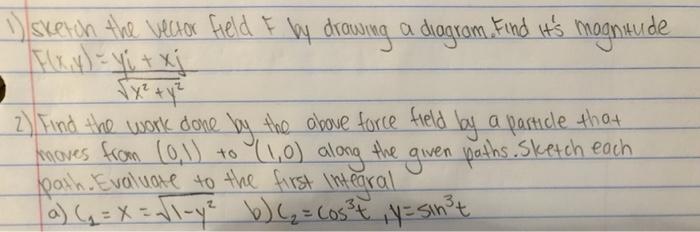 1) sketch the vector field F by drawing a diagram. Find it's magnitude
F(x,y) = yi + xj
√x² + y²
2) Find the work done by the above force field by a particle that
moves from (0,1) to (1,0) along the given paths. Sketch each
path. Evaluate to the first integral
a) C₁ = x = √1-y² b) C₂ = cos³t, y = sin³t